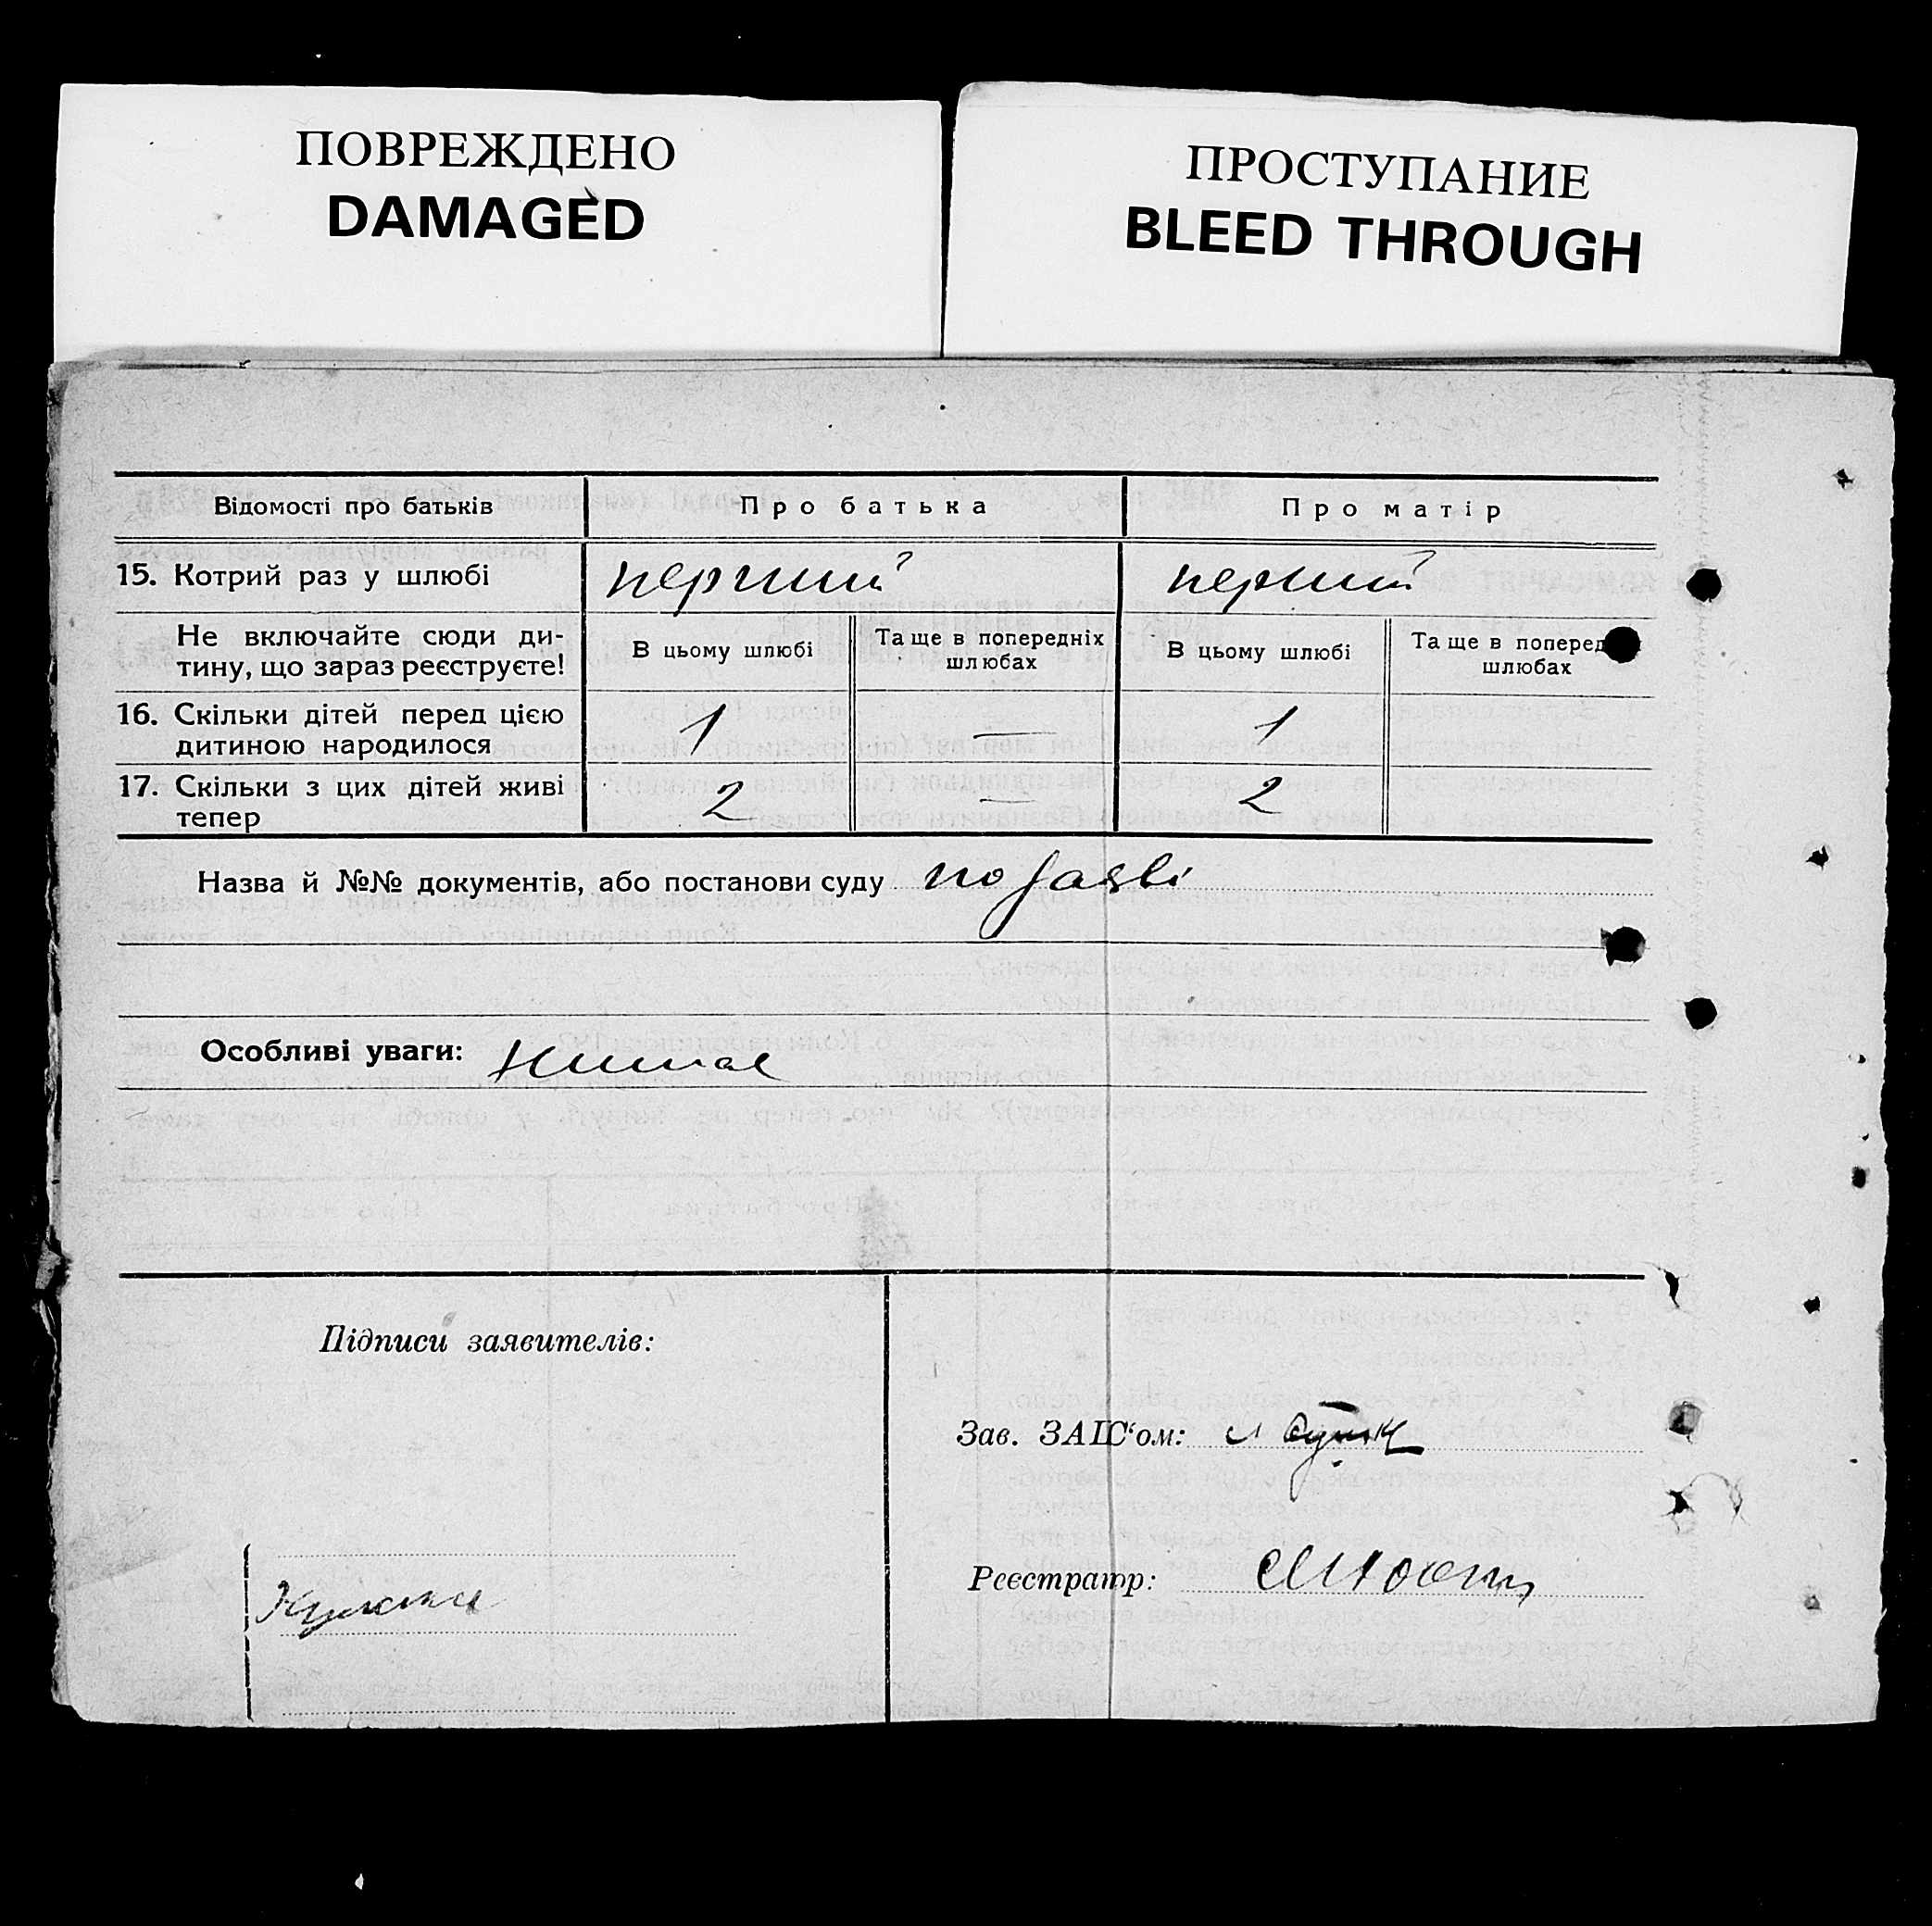 ПОВРЕЖДЕНО
DAMAGED
ПРОСТУПАНИЕ
BLEED THROUGH
Відомості про батьків Про батька Про матір
15. Котрий раз у шлюбі перший перший
Не включайте сюди ди-
тину, що зараз реєструєте!
В цьому шлюбі
Та ще в попередніх
шлюбах
В цьому шлюбі
Та ще в поперед
шлюбах
16. Скільки дітей перед цією
дитиною народилося
1 — 1
17. Скільки з цих дітей живі
тепер
2 — 2
Назва й №№ документів, або постанови суду по заяві
Особливі уваги: немає
Підписи заявителів:
Зав. ЗАГС'ом:
Реєстратр: